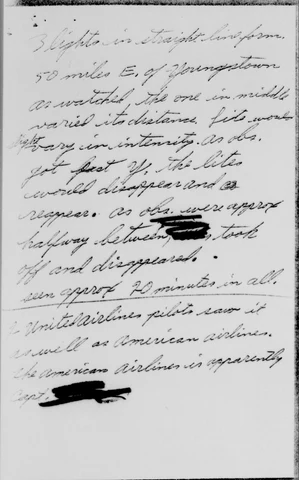 3 lights in straight line form.
50 miles E. of Youngstown
as watched, the one in middle
varied its distance. lites would
light vary in intensity. as obs.
got past Y, the lites
would disappear and
reappear. as obs. were approx
halfway between took
off and disappeared.
seen approx 20 minutes in all.
2 United airlines pilots saw it
as well as American airlines.
the american airlines is apparently
Capt.